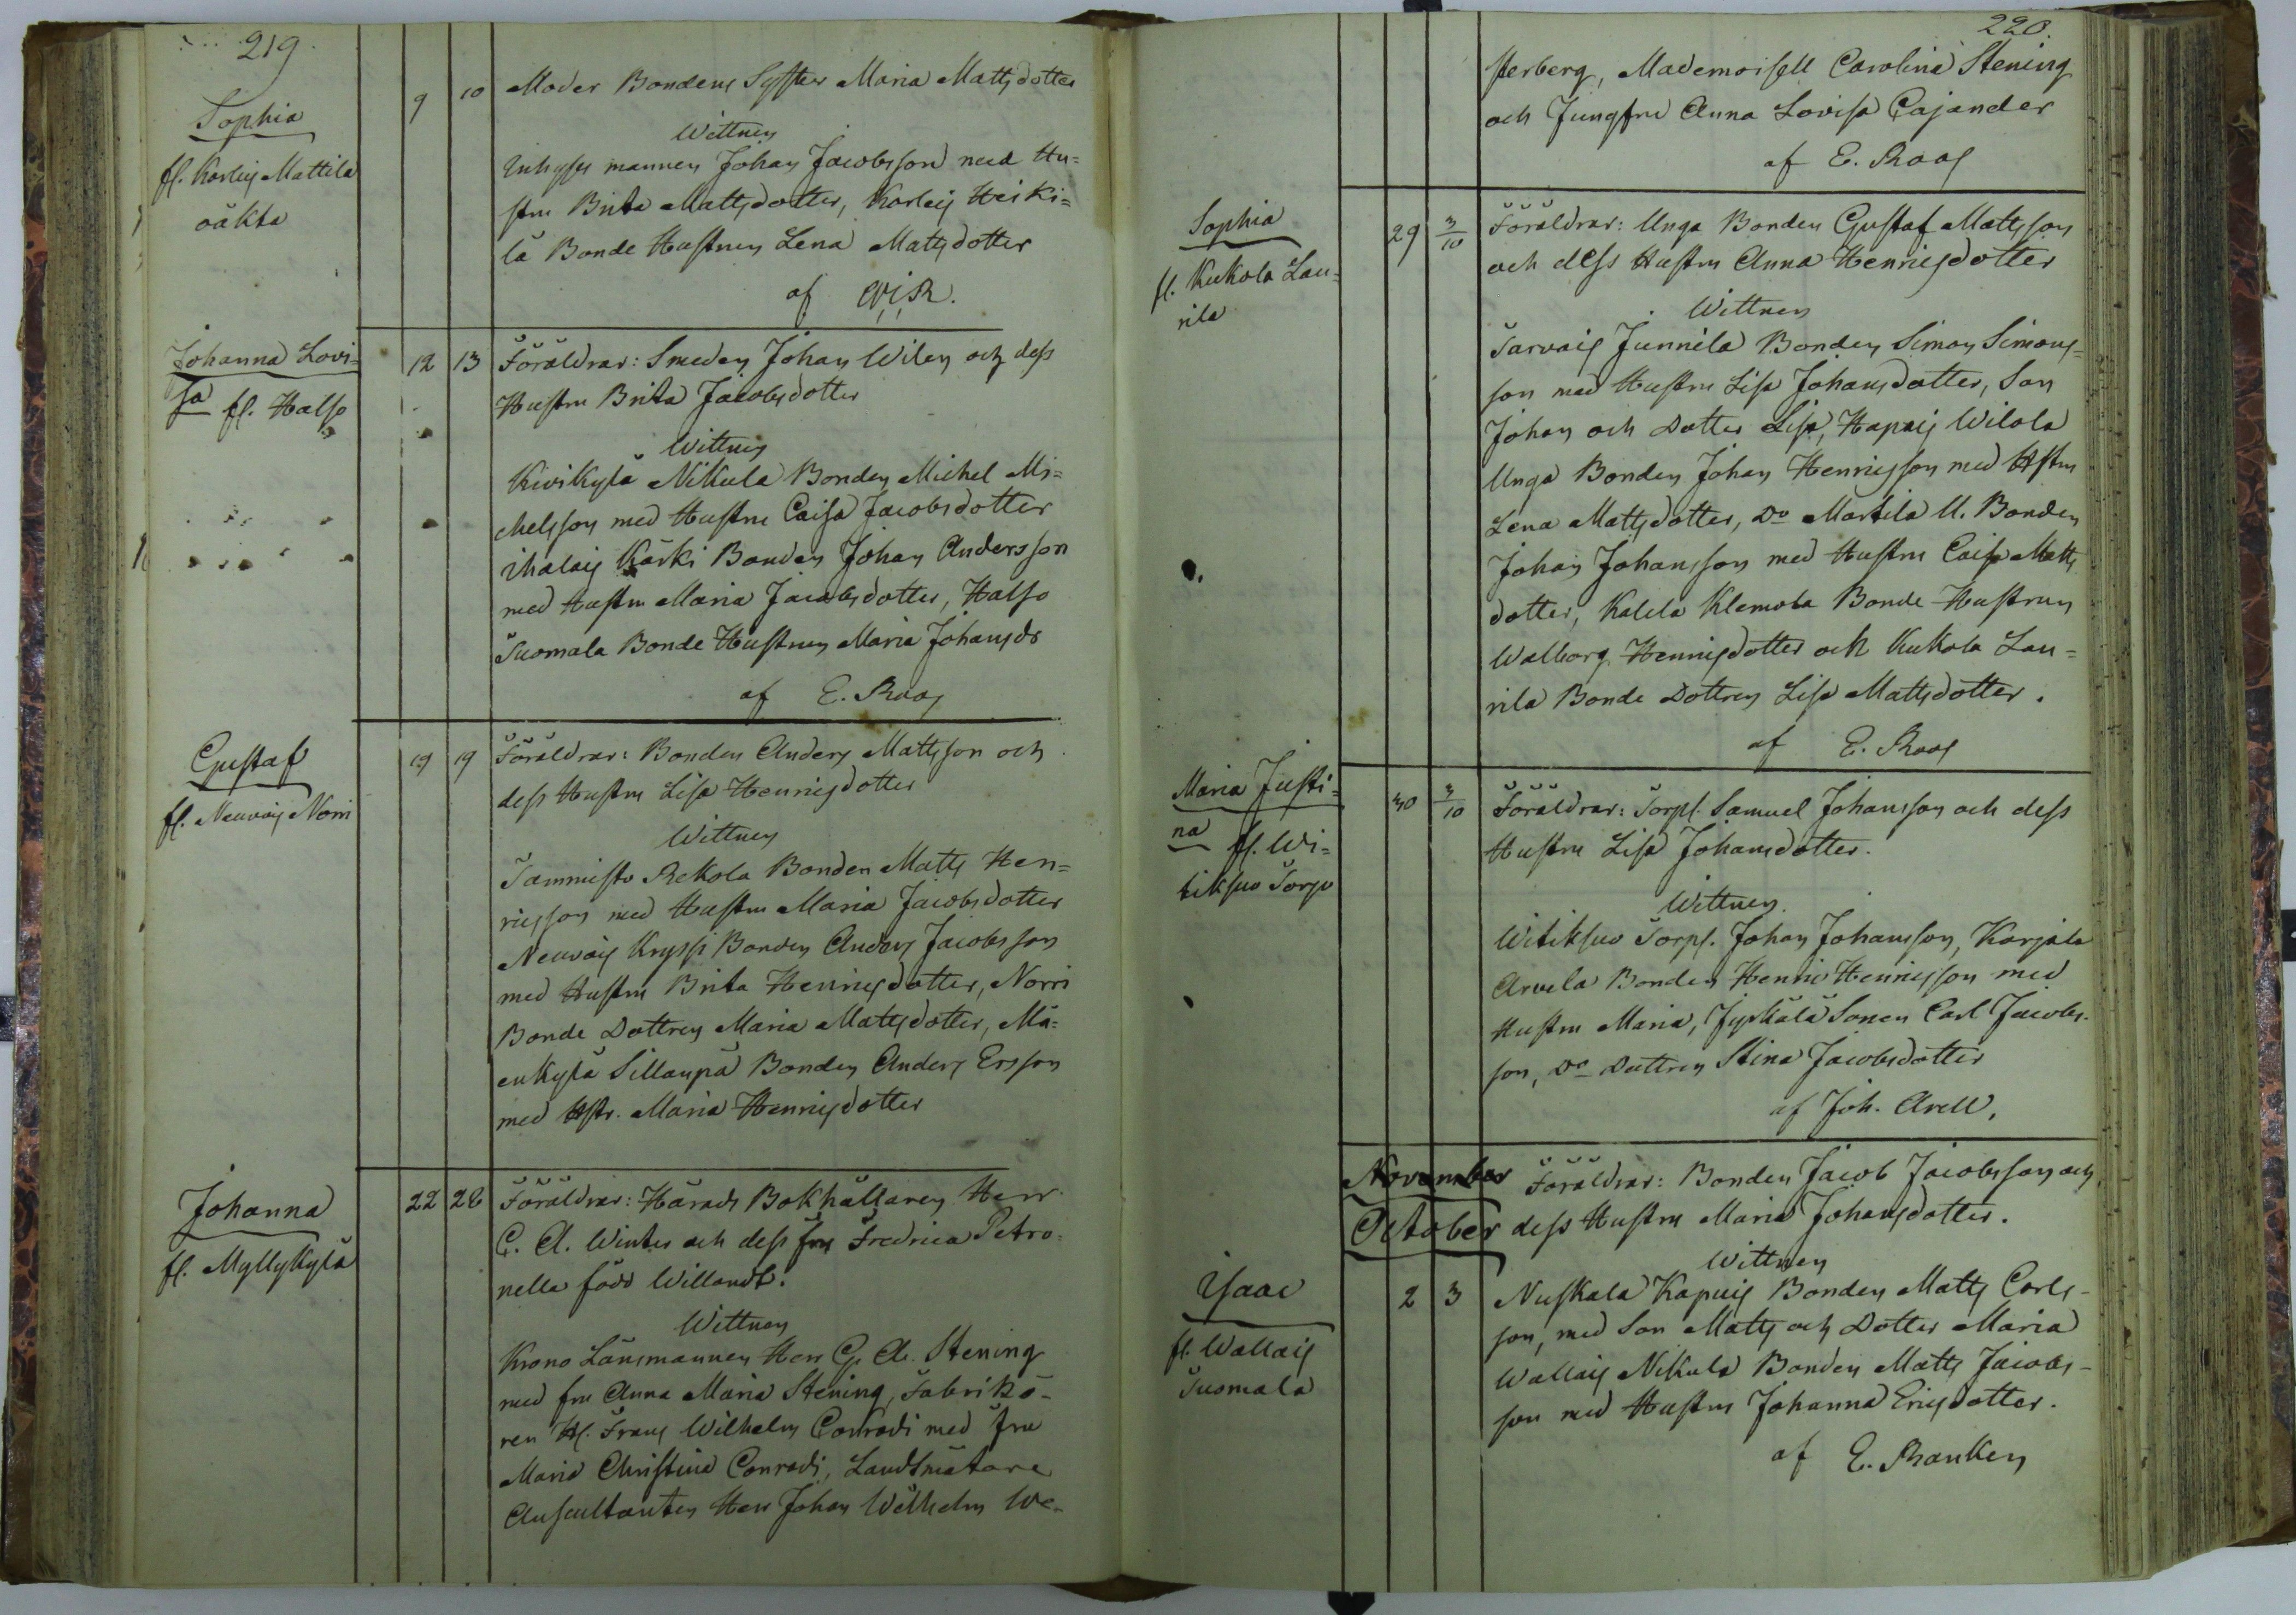 219.
Sophia
fl. Karleij Mattila
oäkta
9 10 Moder Bondens Syster Maria Mattsdotter
Wittnen
Inhyses mannen Johan Jacobsson med Hu=
stru Brita Mattsdotter, Karleij Heiki=
lä Bonde Hustrun Lena Mattsdotter
af
Johanna Lovi=
sa fl. Halso
12 13 Föräldrar: Smeden Johan Wilen och dess
Hustru Brita Jacobsdotter
Wittnen
Kivikylä Nikula Bonden Michel Mi=
chelsson med Hustru Caisa Jacobsdotter
Ihalais Kärki Bonden Johan Andersson
med Hustru Maria Jacobsdotter, Halso
Tuomala Bonde Hustrun Maria Johansdr
af E. Roos
Gustaf
fl. Neuvois Norri
19 19 Föräldrar: Bonden Anders Mattsson och
dess Hustru Lisa Henricsdotter
Wittnen
Tammisto Rekola Bonden Matts Hen=
ricsson med Hustru Maria Jacobsdotter
Neuvois Kryssi Bonden Anders Jacobsson
med Hustru Brita Henricsdotter, Norri
Bonde Dottren Maria Mattsdotter, Mä=
enkylä Sillanpä Bonden Anders Ersson
med Hstr. Maria Henricsdotter
Johanna
fl. Myllykylä
22 28 Föräldrar: Härads Bokhållaren Herr
C. A. Winter och dess fru Fredrica Petro=
nella född Willandt.
Wittnen
Krono Länsmannen Herr G. A. Stening
med fru Anna Maria Stening, Fabrikö-
ren H. Frans Wilhelm Conradi med fru
Maria Christina Conradi, Landtmätare
Auscultanten Herr Johan Wilhelm We-
220.
sterberg, Mademoisell Carolina Stening
och Jungfru Anna Lovisa Cajander
af E. Roos
Sophia
fl. Kukola Lau=
rila
29 3/10 Föräldrar: Unga Bonden Gustaf Mattsson
och dess Hustru Anna Henricsdotter
Wittnen
Tarvais Junnila Bonden Simon Simons=
son med Hustru Lisa Johansdotter, Son
Johan och Dotter Lisa, Hapais Wilola
Unga Bonden Johan Henricsson med Hstru
Lena Mattsdotter, Do Martila U. Bonden
Johan Johansson med Hustru Caisa Matts
dotter, Kalela Klemola Bonde Hustrun
Walborg Henricsdotter och Kukola Lau=
rila Bonde Dottren Lisa Mattsdotter.
af E. Roos
Maria Justi=
na fl. Wi=
tiksuo Torp
30 3/10 Föräldrar: Torp. Samuel Johansson och dess
Hustru Lisa Johansdotter.
Wittnen.
Witiksuo Torp. Johan Johansson, Karjala
Arvela Bonden Henric Henricsson med
Hustru Maria, Jyrkälä Sonen Carl Jacobs-
son, Do Dottren Stina Jacobsdotter
af Joh. Arell,
November
October
Isaac
fl. Wallais
Tuomala
Föräldrar: Bonden Jacob Jacobsson och
dess Hustru Maria Johansdotter.
Wittnen
2 3 Nuskala Kapuis Bonden Matts Carls-
son, med Son Matts och Dotter Maria
Wallais Nikula Bonden Matts Jacobs-
son med Hustru Johanna Ericsdotter.
af E. Ranken